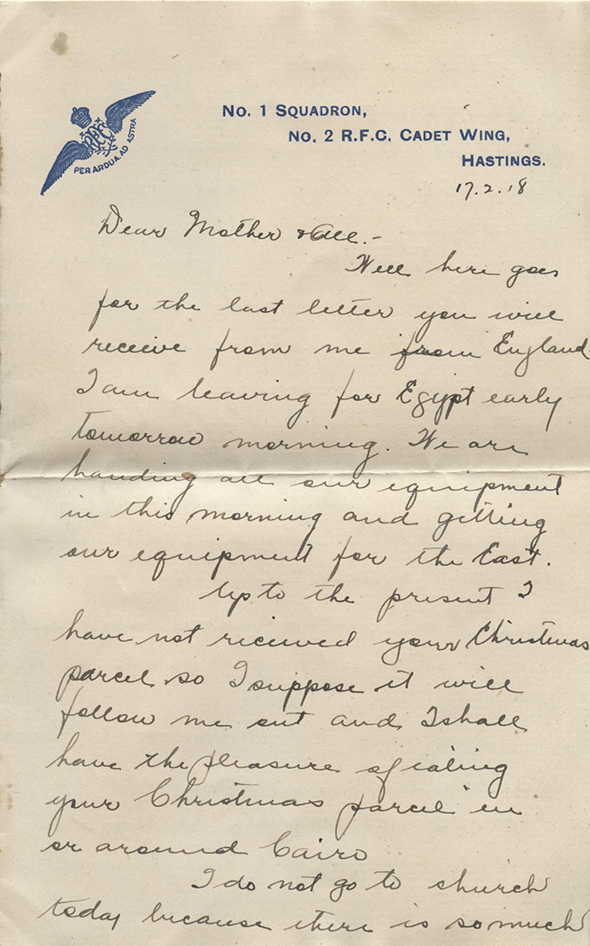 RFC
PER ARDUA AD ASTRA
No. 1 SQUADRON,
No. 2 R.F.C. CADET WING,
HASTINGS.
17.2.18
Dear Mother & All.-
Well here goes
for the last letter you will
receive from me from England.
I am leaving for Egypt early
tomorrow morning. We are
handing all our equipment
in this morning and getting
our equipment for the East.
Up to the present I
have not received your Christmas
parcel so I suppose it will
follow me out and I shall
have the pleasure of eating
your Christmas parcel in
or around Cairo
I do not go to church
today because there is so much